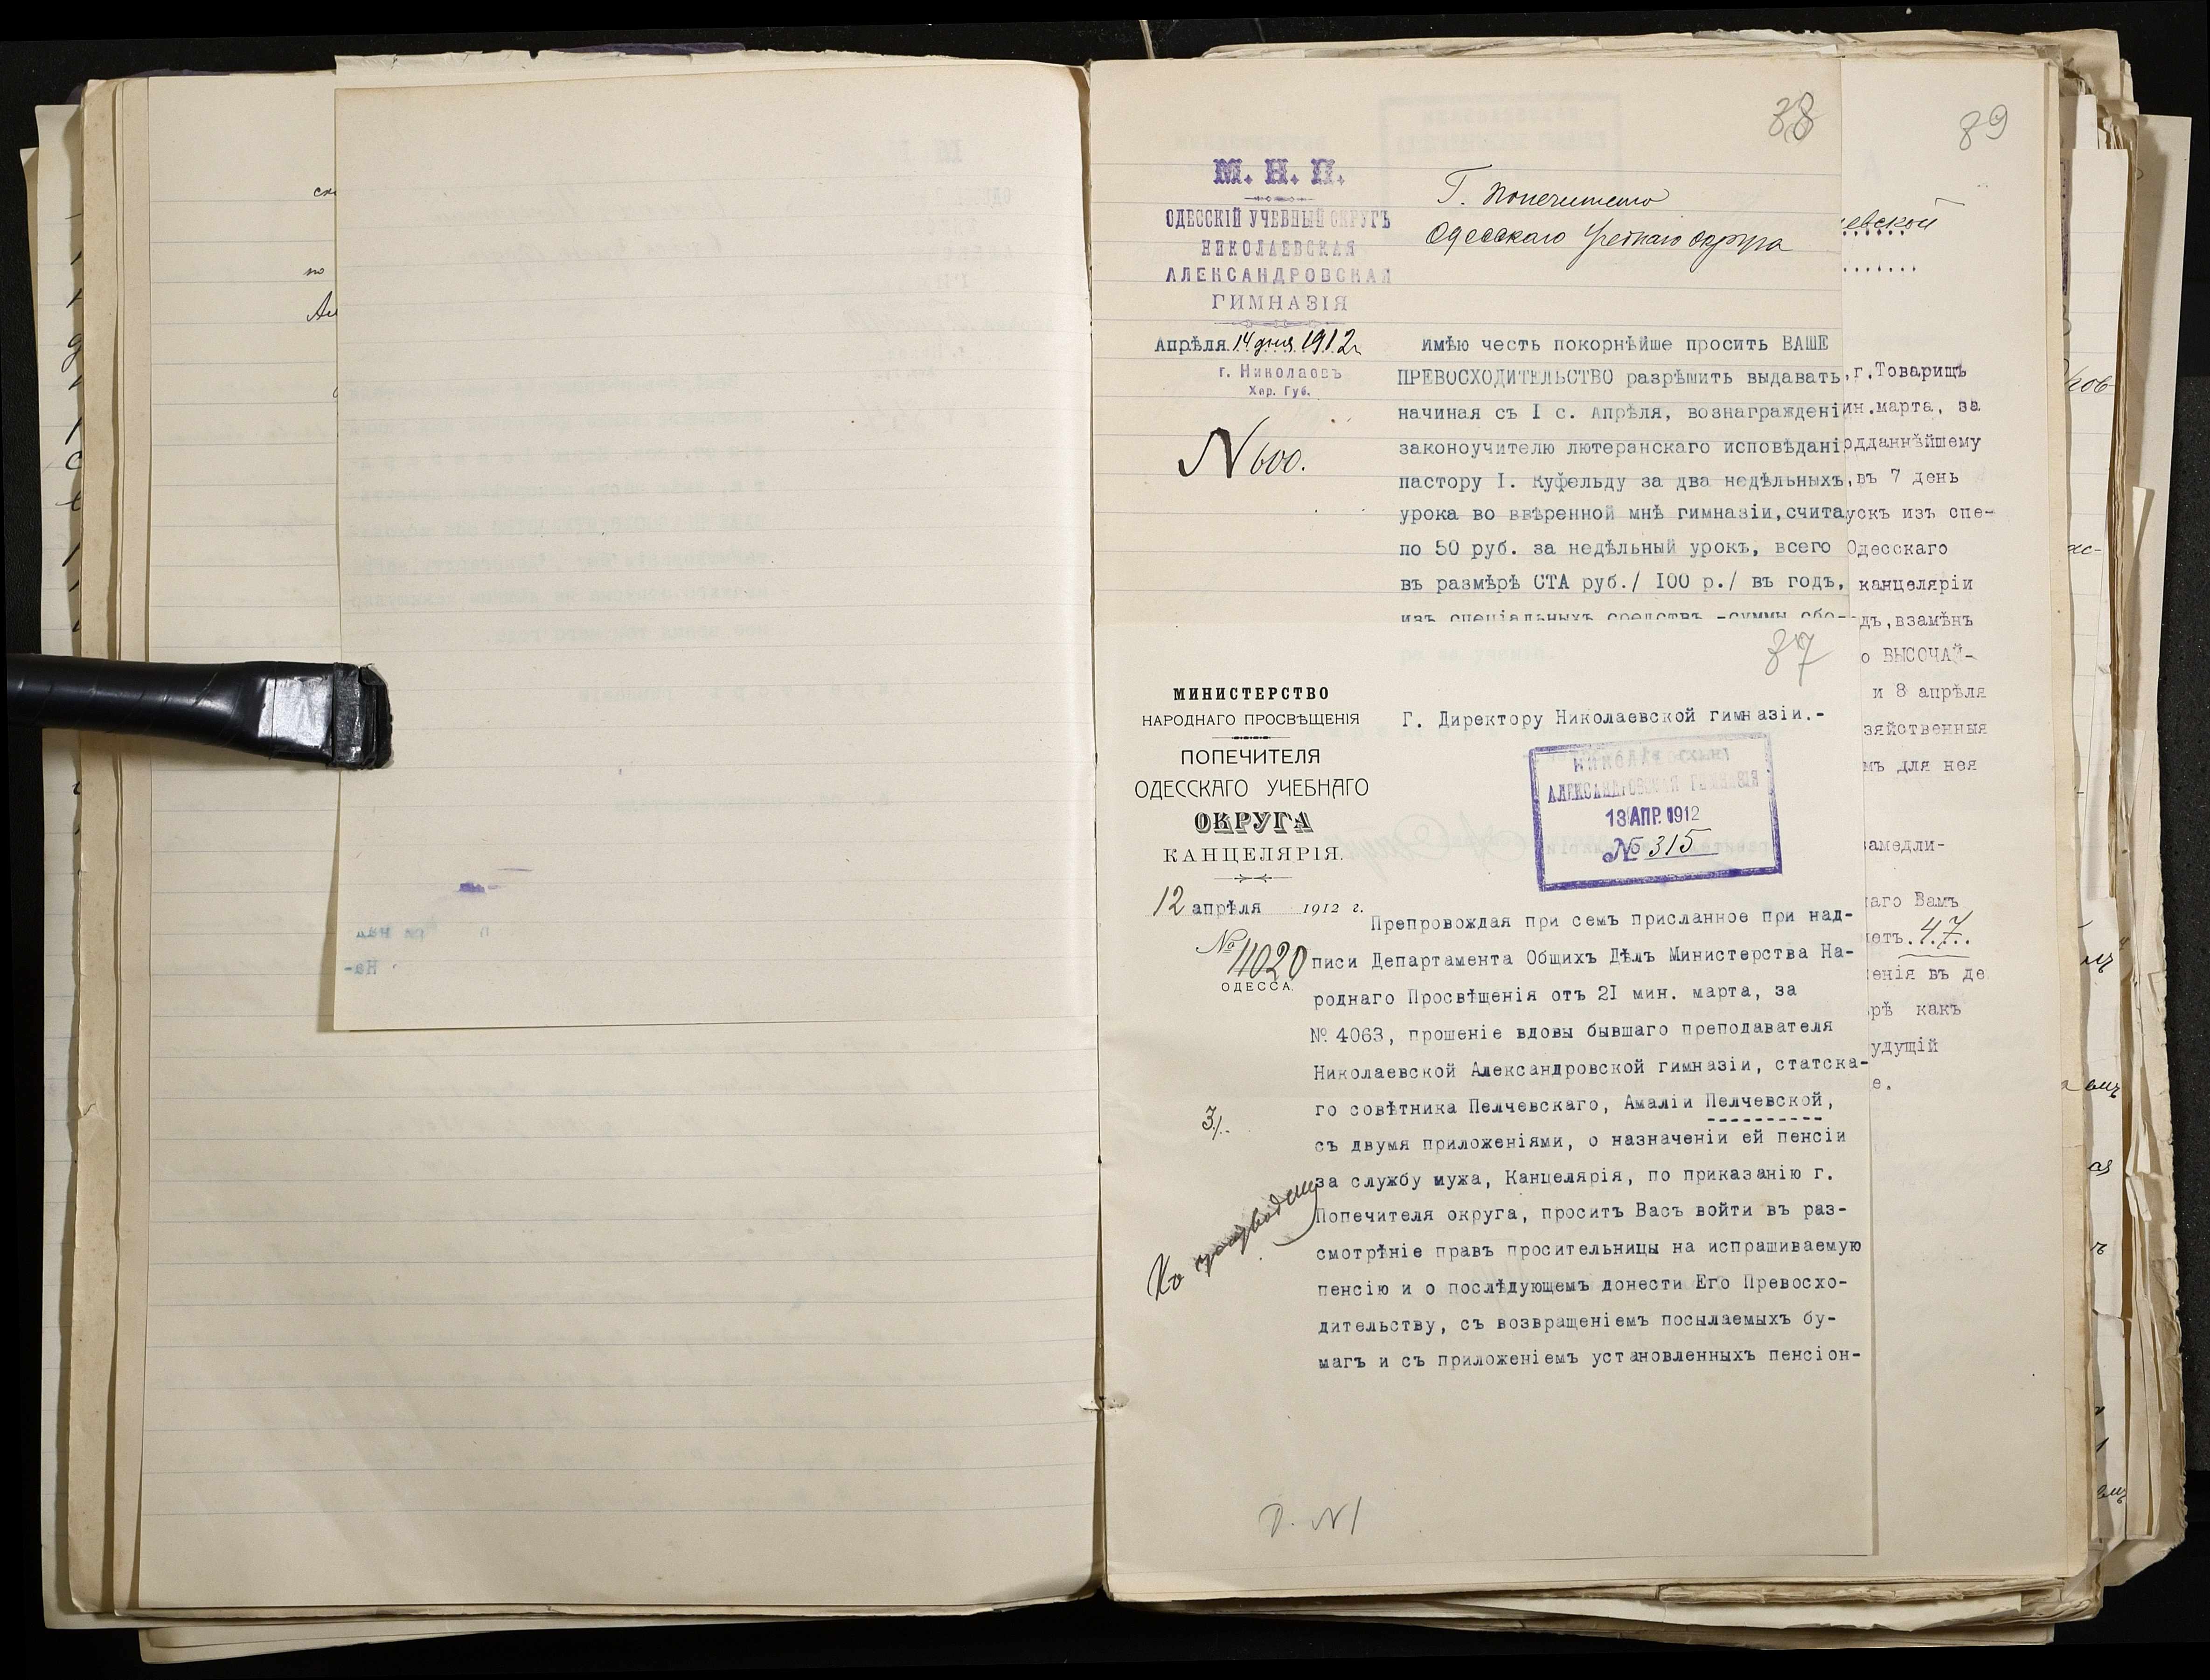 38
М. Н. П.
ОДЕССКІЙ УЧЕБНЫЙ ОКРУГЪ
НИКОЛАЕВСКАЯ
АЛЕКСАНДРОВСКАЯ
ГИМНАЗІЯ
Апрѣля 14 дня 1912 г.
г. Николаевъ
Хер. Губ.
N 600.
Г. Попечителю
Одесскаго Учебнаго Округа
имѣю честь покорнѣйше просить ВАШЕ
ПРЕВОСХОДИТЕЛЬСТВО разрѣшить выдавать,
начиная съ I с. Апрѣля, вознагражденi
законоучителю лютеранскаго исповѣданi
пастору I. Куфельду за два недѣльныхъ
урока во ввѣренной мнѣ гимназіи, счита
по 50 руб. за недѣльный урокъ, всего
въ размѣрѣ СТА руб./ 100 р./ въ годъ,
изъ спеціальныхъ средствъ -суммы сбо-
37
МИНИСТЕРСТВО
НАРОДНАГО ПРОСВѢЩЕНІЯ
ПОПЕЧИТЕЛЯ
ОДЕССКАГО УЧЕБНАГО
ОКРУГА
КАНЦЕЛЯРІЯ.
12 апрѣля 1912 г.
№ 11020
ОДЕССА.
Г. Директору Николаевской гимназіи.-
НИКОЛАЕВСКАЯ
АЛЕКСАНДРОВСКАЯ ГИМНАЗІЯ
13 АПР. 1912
№ 315
Препровождая при семъ присланное при над-
писи Департамента Общихъ Дѣлъ Министерства На-
роднаго Просвѣщенія отъ 21 мин. марта, за
№ 4063, прошеніе вдовы бывшаго преподавателя
Николаевской Александровской гимназіи, статска-
го совѣтника Пелчевскаго, Амаліи Пелчевской,
съ двумя приложеніями, о назначеніи ей пенсіи
за службу мужа, Канцелярія, по приказанію г.
Попечителя округа, проситъ Васъ войти въ раз-
смотрѣніе правъ просительницы на испрашиваемую
пенсію и о послѣдующемъ донести Его Превосхо-
дительству, съ возвращеніемъ посылаемыхъ бу-
магъ и съ приложеніемъ установленныхъ пенсіон-
3/.
89
евской
,г.Товарищъ
ин.марта, за
одданнѣйшему
,въ 7 день
ускъ изъ спе-
Одесскаго
канцеляріи
дъ,взамѣнъ
о ВЫСОЧАЙ-
и 8 апрѣля
зяйственныя
мъ для нея
амедли-
наго Вамъ
етъ. 47.
енія въ де
рѣ какъ
удущій
е.